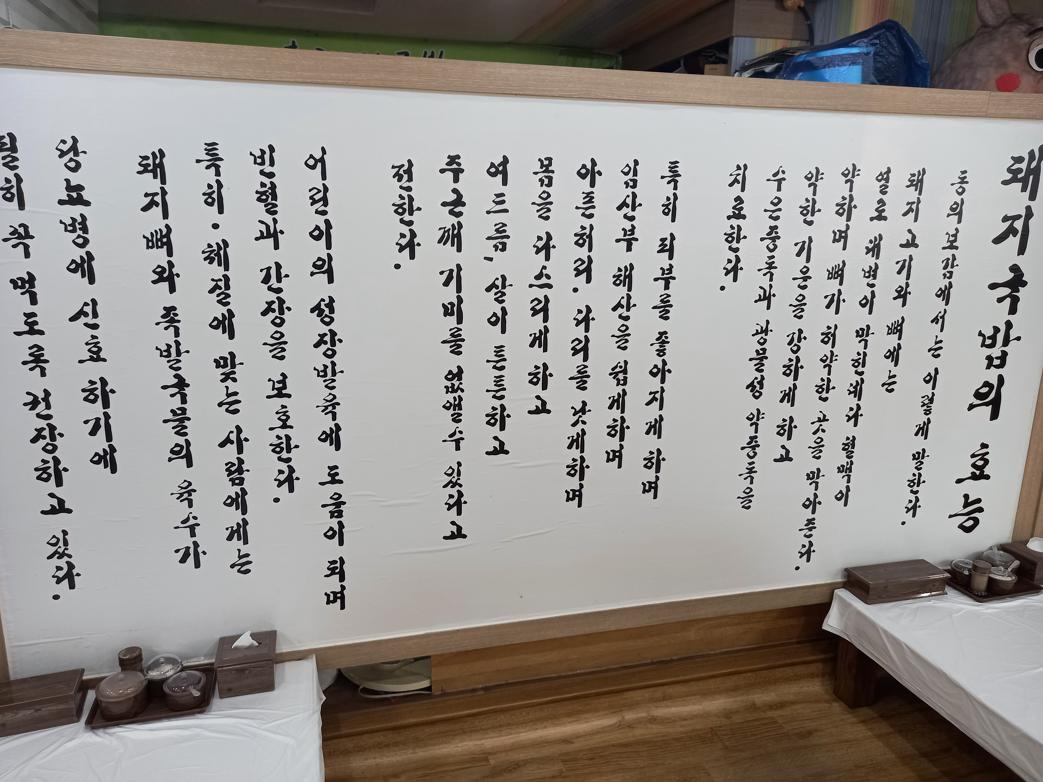 돼지국밥의 효능
동의보감에서는 이렇게 말한다.
돼지고기와 뼈에는
열로 대변이 막힌데다 혈맥이
약하며 뼈가 허약한 곳을 막아준다.
약한 기운을 강하게 하고
수은중독과 광물성 약중독을
치료한다.
특히 피부를 좋아지게 하며
임산부 해산을 쉽게하며
아픈허리·다리를 낫게하며
몸을 다스리게하고
여드름, 살이 튼튼하고
주근깨 기미를 없앨수 있다고
전한다.
어린이의 성장발육에 도움이 되며
빈혈과 간장을 보호한다.
특히·체질에 맞는 사람에게는
돼지뼈와 족발국물의 육수가
당뇨병에 신효 하기에
필히 꼭 먹도록 권장하고 있다.